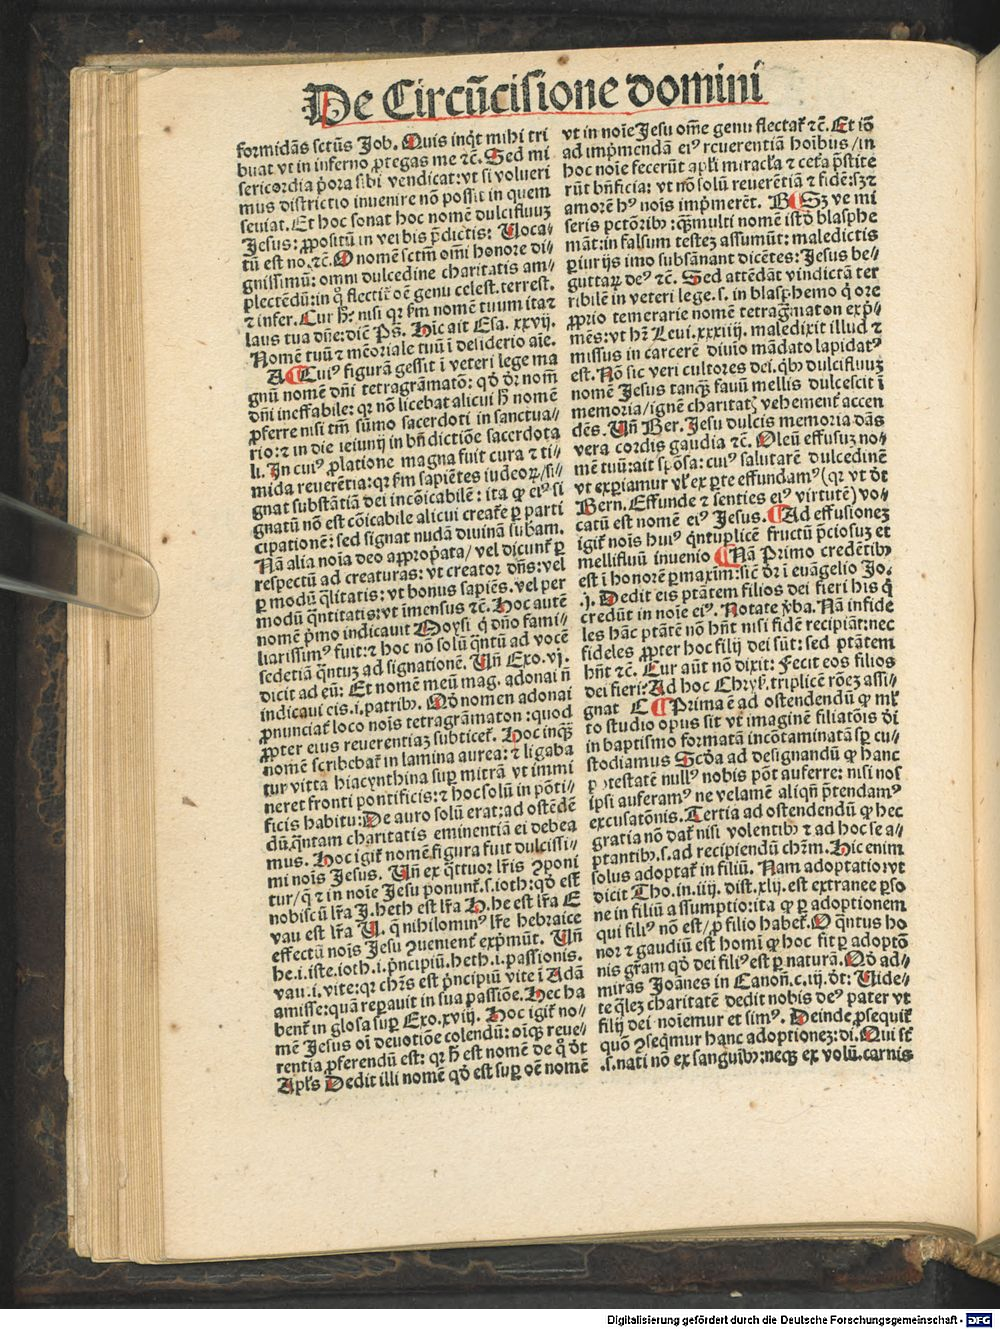 De Circūcisione domini
formidās sctūs Job. Quis inqͥt mihi tri
buat vt in inferno ꝓtegas me ⁊c̄. Sed mi
sericordia p̄ora sibi vendicat: vt si volueri
mus districtio inuenire nō possit in quem
seuiat. Et hoc sonat hoc nomē dulcifluuʒ
Jesus: ꝓpositū in verbis p̄dictis: Uoca-
tū est no. ⁊c̄. O nomē sctm̄ om̄i honore di-
gnissimū: omni dulcedine charitatis am-
plectēdū: in qͦ flectit̉ oē genu celest. terrest.
⁊ infer. Cur h̄? nisi qꝛ ẜm nomē tuum ita ⁊
laus tua dn̄e: diē Ps̄. Hic ait Esa. xxvij.
Nomē tuū ⁊ mēoriale tuū ī desiderio aīe.
A Cuiꝰ figurā gessit ī veteri lege ma
gnū nomē dn̄i tetragrāmatō: qd̄ dr̄ nom̄
dn̄i ineffabile: qꝛ nō licebat alicui h̄ nomē
ꝓferre nisi tm̄ sūmo sacerdoti in sanctua-
rio: ⁊ in die ieiunij in bn̄dictiōe sacerdota
li. In cuiꝰ ꝓlatione magna fuit cura ⁊ ti-
mida reuerētia: qꝛ ẜm sapiētes iudeoꝝ/ si-
gnat substātiā dei incōicabilē: ita ꝙ eiꝰ si
gnatū nō est cōicabile alicui creat̉e ꝑ parti
cipationē: sed signat nudā diuinā subam.
Nā alia noīa deo appropͥata/ vel dicunt̉ ꝑ
respectū ad creaturas: vt creator dn̄s: vel
ꝑ modū qͣlitatis: vt bonus sapiēs. vel per
modū qͣntitatis: vt īmensus ⁊c̄. Hoc autē
nomē pͥmo indicauit Moysi qͥ dn̄o fami-
liarissimꝰ fuit: ⁊ hoc nō solū qͣntū ad vocē
sed etiā qͣntuʒ ad signationē. Un̄ Exo. vj.
dicit ad eū: Et nomē meū mag. adonai n̄
indicaui eis .i. patribꝰ. Qd̄ nomen adonai
ꝓnunciat̉ loco noīs tetragrāmaton: quod
ꝓpter eius reuerentiaʒ subticet̉. Hoc inqͣʒ
nomē scribebat̉ in lamina aurea: ⁊ ligaba
tur vitta hiacynthina suꝑ mitrā vt immi
neret fronti pontificis: ⁊ hoc solū in pōti-
ficis habitu: De auro solū erat: ad ostēdē
dū qͣntam charitatis eminentiā ei debea
mus. Hoc igit̉ nomē figura fuit dulcissi-
mi noīs Jesus. Un̄ ex qͣttuor lr̄is ꝯponi
tur/ q̄ ⁊ in noīe Jesu ponunt̉ .s. ioth: qd̄ est
nobiscū lr̄a J. heth est lr̄a H. he est lr̄a E
vau est lr̄a U. q̄ nihilominꝰ lr̄e hebraice
effectū noīs Jesu ꝯuenient̉ expͥmūt. Un̄
he .i. iste. ioth .i. pͥncipiū. heth .i. passionis.
vau .i. vite: qꝛ chr̄s est pͥncipiū vite ī Adā
amisse: quā reꝑauit in sua passiōe. Hec ha
bent̉ in glosa suꝑ Exo. xviij. Hoc igit̉ no-
mē Jesus oī deuotiōe colendū: oīqꝫ reue-
rentia ꝓferendū est: qꝛ h̄ est nomē de qͦ dt̄
Apl̄s Dedit illi nomē qd̄ est suꝑ oē nomē
vt in noīe Jesu om̄e genu flectat̉ ⁊c̄. Et iō
ad impͥmendā eiꝰ reuerentiā hoībus/ in
hoc noīe fecerūt apl̄i miracl̄a ⁊ ceta p̄stite
rūt bn̄ficia: vt nō solū reuerētiā ⁊ fidē: sʒ ⁊
amorē hꝰ noīs impͥmerēt. B Sʒ ve mi
seris pctōribꝰ: qm̄ multi nomē istd̄ blasphe
māt: in falsum testeʒ assumūt: maledictis
ꝑiurijs imo subsānant dicētes: Jesus be-
guttaꝝ deꝰ ⁊c̄. Sed attēdāt vindictā ter
ribilē in veteri lege .s. in blasphemo qͥ ore
ꝓprio temerarie nomē tetragr̄maton expͥ-
mēs: vt hr̄ Leui. xxiiij. maledixit illud ⁊
missus in carcerē diuīo mādato lapidatꝰ
est. Nō sic veri cultores dei. qͥbꝰ dulcifluuʒ
nomē Jesus tanqͣʒ fauū mellis dulcescit ī
memoria/ ignē charitatʒ vehement̉ accen
dēs. Un̄ Ber. Jesu dulcis memoria dās
vera cordis gaudia ⁊c̄. Oleū effusuʒ no-
mē tuū: ait spōsa: cuiꝰ salutarē dulcedinē
vt experiamur vl̓ ex ꝑte effundamꝰ (qꝛ vt dt̄
Bern. Effunde ⁊ senties eiꝰ virtutē) vo-
catū est nomē eiꝰ Jesus. Ad effusioneʒ
igit̉ noīs huiꝰ qͥntuplicē fructū p̄ciosuʒ et
mellifluū inuenio Nā Primo credētibꝰ
est ī honorē ꝑmaxim: sic̄ dr̄ ī euāgelio Jo.
.j. Dedit eis ptātem filios dei fieri his qͥ
credūt in noīe eiꝰ. Notate v̓ba. Nā infide
les hāc ptātē nō hn̄t nisi fidē recipiāt: nec
fideles ꝓpter hoc filij dei sūt: sed ptātem
hn̄t ⁊c̄. Cur aūt nō dixit: Fecit eos filios
dei fieri? Ad hoc Chryẜ. triplicē rōeʒ assi-
gnat C Prima ē ad ostendendū ꝙ ml̓
to studio opus sit vt imaginē filiatōis dī
in baptismo formatā incōtaminatā sꝑ cu-
stodiamus Scd̄a ad designandū ꝙ hanc
ptestatē nullꝰ nobis pōt auferre: nisi nos
ipsi auferamꝰ ne velamē aliqd̄ p̄tendamꝰ
excusatōnis. Tertia ad ostendendū ꝙ hec
gratia nō dat̉ nisi volentibꝰ ⁊ ad hoc se a-
ptantibꝰ .s. ad recipiendū chr̄m. Hic enim
solus adoptat̉ in filiū. Nam adoptatio: vt
dicit Tho. in .iiij. dist. xlij. est extranee ꝑso
ne in filiū assumptio: ita ꝙ ꝑ adoptionem
qui filiꝰ nō est/ ꝓ filio habet̉. O qͣntus ho
nor ⁊ gaudiū est homī ꝙ hoc fit ꝑ adoptō
nis gr̄am qd̄ dei filiꝰ est ꝑ naturā. Qd̄ ad-
mirās Joānes in Canoń. c. iij. dt̄: Uide-
te qͣleʒ charitatē dedit nobis deꝰ pater vt
filij dei noīemur et simꝰ. Deinde ꝓsequit̉
quō ꝯseqͣmur hanc adoptioneʒ: dī. Qui st̄
.s. nati nō ex sanguībꝰ: neqꝫ ex volū. carnis
Digitalisierung gefördert durch die Deutsche Forschungsgemeinschaft - DFG